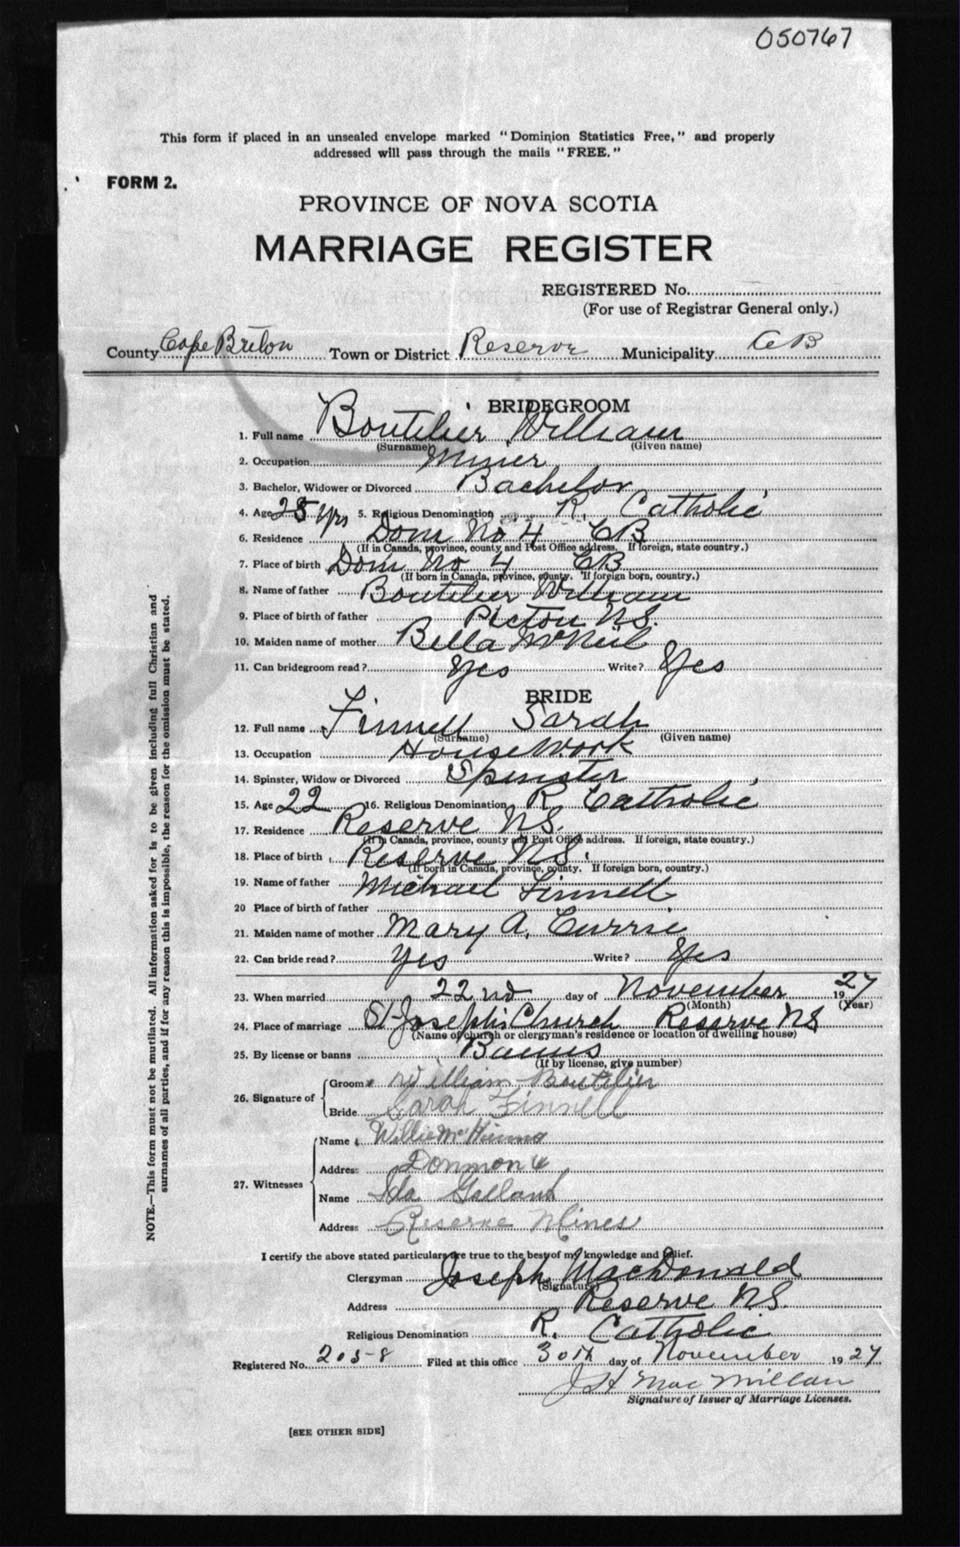 050767
This form if placed in an unsealed envelope marked "Dominion Statistics Free," and properly
addressed will pass through the mails "FREE."
FORM 2.
PROVINCE OF NOVA SCOTIA
MARRIAGE REGISTER
REGISTERED No.
(For use of Registrar General only.)
County Cape Breton Town or District Reserve Municipality CB
BRIDEGROOM
1. Full name Boutilier William
(Surname) (Given name)
2. Occupation Miner
3. Bachelor, Widower or Divorced Bachelor
4. Age 25 yrs 5. Religious Denomination R. Catholic
6. Residence Dom No 4 CB
(If in Canada, province, county and Post Office address. If foreign, state country.)
7. Place of birth Dom No 4 CB
(If born in Canada, province, county. If foreign born, country.)
8. Name of father Boutilier William
9. Place of birth of father Picton NS.
10. Maiden name of mother Bella McNeil
11. Can bridegroom read? Yes Write? Yes
BRIDE
12. Full name Finnell Sarah
(Surname) (Given name)
13. Occupation House Work
14. Spinster, Widow or Divorced Spinster
15. Age 22 16. Religious Denomination R. Catholic
17. Residence Reserve NS.
(If in Canada, province, county and Post Office address. If foreign, state country.)
18. Place of birth Reserve NS.
(If born in Canada, province, county. If foreign born, country.)
19. Name of father Michael Finnell
20 Place of birth of father
21. Maiden name of mother Mary A. Currie
22. Can bride read? Yes Write? Yes
23. When married 22nd day of November 1927
(Month) (Year)
24. Place of marriage St Joseph's Church Reserve NS
(Name of church or clergyman's residence or location of dwelling house)
25. By license or banns Banns
(If by license, give number)
26. Signature of Groom William Boutilier
Bride Sarah Finnell
27. Witnesses Name Willie
Address Donmon 4
Name Ida Galland
Address Reserve Mines
I certify the above stated particulars are true to the best of my knowledge and belief.
Clergyman Joseph MacDonald
(Signature)
Address Reserve NS.
Religious Denomination R. Catholic
Registered No. 2058 Filed at this office 30th day of November 1927
J H MacMillan
Signature of Issuer of Marriage Licenses.
[SEE OTHER SIDE]
NOTE.—This form must not be mutilated. All information asked for is to be given including full Christian and
surnames of all parties, and if for any reason this is impossible, the reason for the omission must be stated.